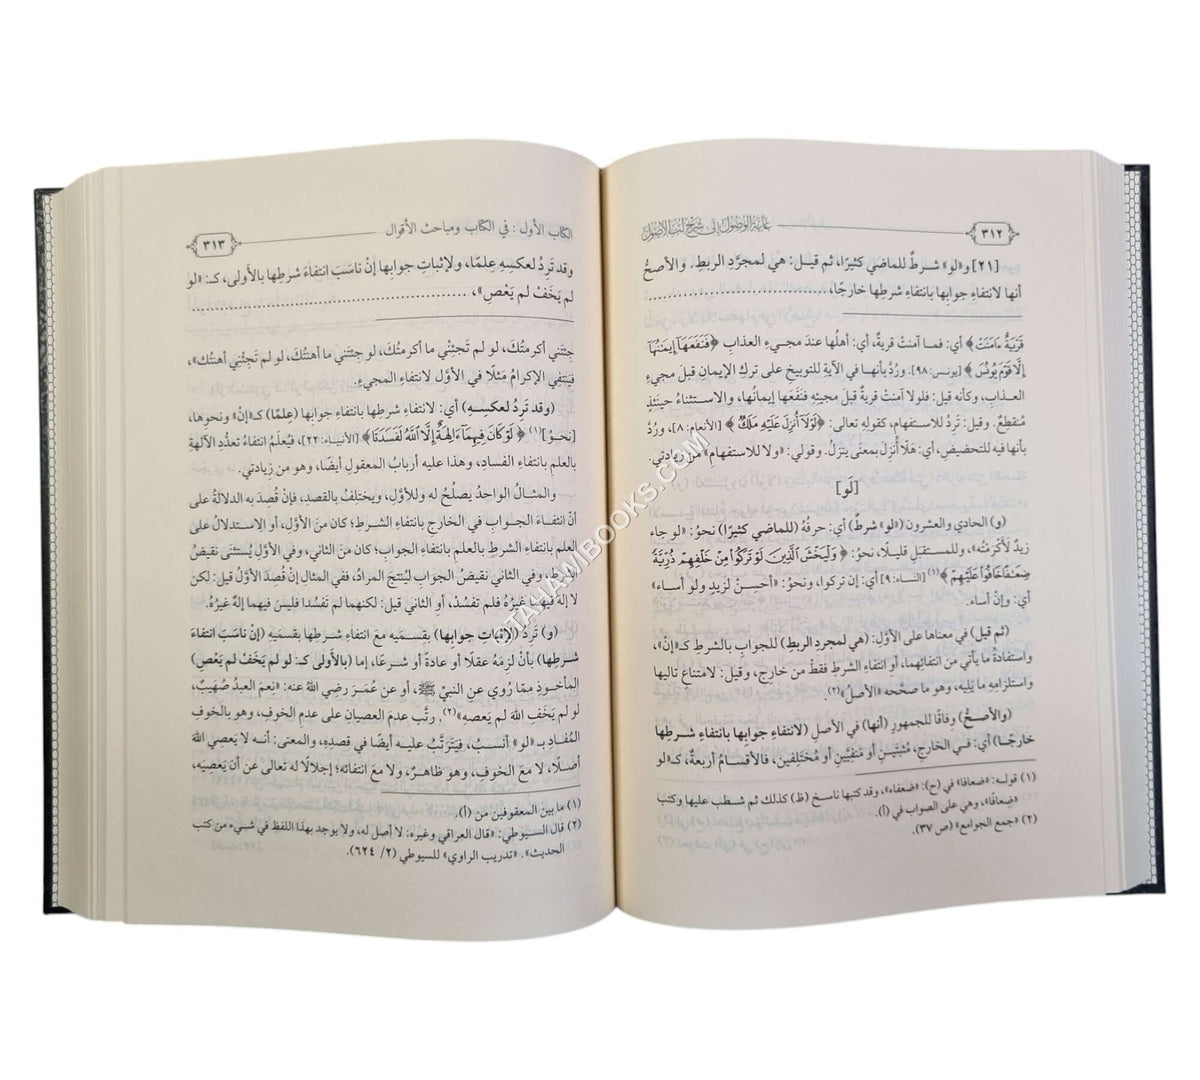 ٣١٢
غاية الوصول إلى شرح لب الأصول
[٢١] و«لو» شرطٌ للماضي كثيرًا، ثم قيل: هي لمجرَّدِ الربطِ. والأصحُّ
أنها لانتفاءِ جوابِها بانتفاءِ شرطِها خارجًا،
قَرْيَةٌ ءَامَنَتْ﴾ أي: فما آمنتْ قريةٌ، أي: أهلُها عندَ مجيءِ العذابِ ﴿فَنَفَعَهَا إِيمَٰنُهَا
إِلَّا قَوْمَ يُونُسَ﴾ [يونس: ٩٨]. ورُدَّ بأنها في الآيةِ للتوبيخِ على تركِ الإيمانِ قبلَ مجيءِ
العذابِ، وكأنه قيل: فلولا آمنتْ قريةٌ قبلَ مجيئِه فنَفَعَها إيمانُها، والاستثناءُ حينئذٍ
منقطعٌ. وقيل: تَرِدُ للاستفهامِ، كقولِه تعالى: ﴿لَوْلَا أُنزِلَ عَلَيْهِ مَلَكٌ﴾ [الأنعام: ٨]، ورُدَّ
بأنها فيه للتحضيضِ، أي: هَلَّا أُنزِلَ بمعنَى يَنزلُ. وقولي: «ولا للاستفهامِ» من زيادتي.
[لَو]
(و) الحادي والعشرون («لو» شرطٌ) أي: حرفُهُ (للماضي كثيرًا) نحوُ: «لو جاء
زيدٌ لَأَكرَمْتُه»، وللمستقبَلِ قليلًا، نحوُ: ﴿وَلْيَخْشَ ٱلَّذِينَ لَوْ تَرَكُوا۟ مِنْ خَلْفِهِمْ ذُرِّيَّةً
ضِعَٰفًا خَافُوا۟ عَلَيْهِمْ﴾(١) [النساء: ٩] أي: إن تركوا، ونحوُ: «أحسِنْ لزيدٍ ولو أساء»
أي: وإن أساء.
(ثم قيل) في معناها على الأوَّلِ: (هي لمجردِ الربطِ) للجوابِ بالشرطِ كـ«إنْ»،
واستفادةُ ما يأتي من انتفائِهما، أو انتفاءِ الشرطِ فقطْ من خارجٍ، وقيل: لامتناعِ تاليها
واستلزامِه ما يَليه، وهو ما صحَّحه «الأصلُ»(٢).
(والأصحُّ) وفاقًا للجمهورِ (أنها) في الأصلِ (لانتفاءِ جوابِها بانتفاءِ شرطِها
خارجًا) أي: في الخارجِ، مُثبتَينِ أو مَنفيَّينِ أو مُختلِفَينِ، فالأقسامُ أربعةٌ، كـ«لو
(١) قوله: «ضعافا» في (ح): «ضعفاء»، وقد كتبها ناسخ (ظ) كذلك ثم شطب عليها وكتب
«ضعافًا»، وهي على الصواب في (أ).
(٢) «جمع الجوامع» (ص ٣٧).
الكتاب الأول: في الكتاب ومباحث الأقوال
٣١٣
وقد تَرِدُ لعكسِهِ عِلمًا، ولإثباتِ جوابِها إنْ ناسَبَ انتفاءَ شرطِها بالأولى، كـ: «لو
لم يَخَفْ لم يَعْصِ»،
جِئتَني أكرمتُكَ، لو لم تَجئْني ما أكرمتُكَ، لو جئتَني ما أهنتُكَ، لو لم تَجئْني أهنتُك»،
فيَنتفي الإكرامُ مَثلًا في الأوَّلِ لانتفاءِ المجيءِ.
(وقد تَرِدُ لعكسِهِ) أي: لانتفاءِ شرطِها بانتفاءِ جوابِها (عِلمًا) كـ«إنْ» ونحوِها،
[نحوُ](١) ﴿لَوْ كَانَ فِيهِمَآ ءَالِهَةٌ إِلَّا ٱللَّهُ لَفَسَدَتَا﴾ [الأنبياء: ٢٢]، فيُعلَمُ انتفاءُ تعدُّدِ الآلهةِ
بالعلمِ بانتفاءِ الفسادِ، وهذا عليه أربابُ المعقولِ أيضًا، وهو من زيادتي.
والمثالُ الواحدُ يصلُحُ له وللأوَّلِ، ويختلِفُ بالقصدِ، فإنْ قُصِدَ به الدلالةُ على
أنَّ انتفاءَ الجوابِ في الخارجِ بانتفاءِ الشرطِ؛ كان منَ الأوَّلِ، أو الاستدلالُ على
العلمِ بانتفاءِ الشرطِ بالعلمِ بانتفاءِ الجوابِ؛ كان من الثاني، وفي الأوَّلِ يُستثنَى نقيضُ
الشرطِ، وفي الثاني نقيضُ الجوابِ لينتجَ المرادُ، ففي المثالِ إنْ قُصِدَ الأوَّلُ قيل: لكن
لا إلهَ فيهما غيرُهُ فلم تفسُدْ، أو الثاني قيل: لكنهما لم تَفسُدا فليسَ فيهما إلهٌ غيرُهُ.
(و) تَرِدُ (لإثباتِ جوابِها) بقسمَيه معَ انتفاءِ شرطِها بقسمَيه (إنْ ناسَبَ انتفاءَ
شرطِها) بأنْ لزمَهُ عقلًا أو عادةً أو شرعًا، إما (بالأَولى كـ: لو لم يَخَفْ لم يَعْصِ)
المأخوذِ ممَّا رُوي عن النبيِّ ﷺ، أو عن عُمَرَ رضي اللهُ عنه: «نِعمَ العبدُ صُهَيبٌ،
لو لم يَخَفِ اللهَ لم يَعصِه»(٢). رتَّب عدمَ العصيانِ على عدمِ الخوفِ، وهو بالخوفِ
المُفادِ بـ «لو» أنسَبُ، فيَترتَّبُ عليه أيضًا في قصدِه، والمعنى: أنه لا يَعصي اللهَ
أصلًا، لا معَ الخوفِ، وهو ظاهرٌ، ولا معَ انتفائِه؛ إجلالًا له تعالى عن أن يَعصِيَه،
(١) ما بين المعقوفين من (أ).
(٢) قال السيوطي: «قال العراقي وغيره: لا أصل له، ولا يوجد بهذا اللفظ في شيء من كتب
الحديث». «تدريب الراوي» للسيوطي (٢/ ٦٢٤).
TAHAWIBOOKS.COM